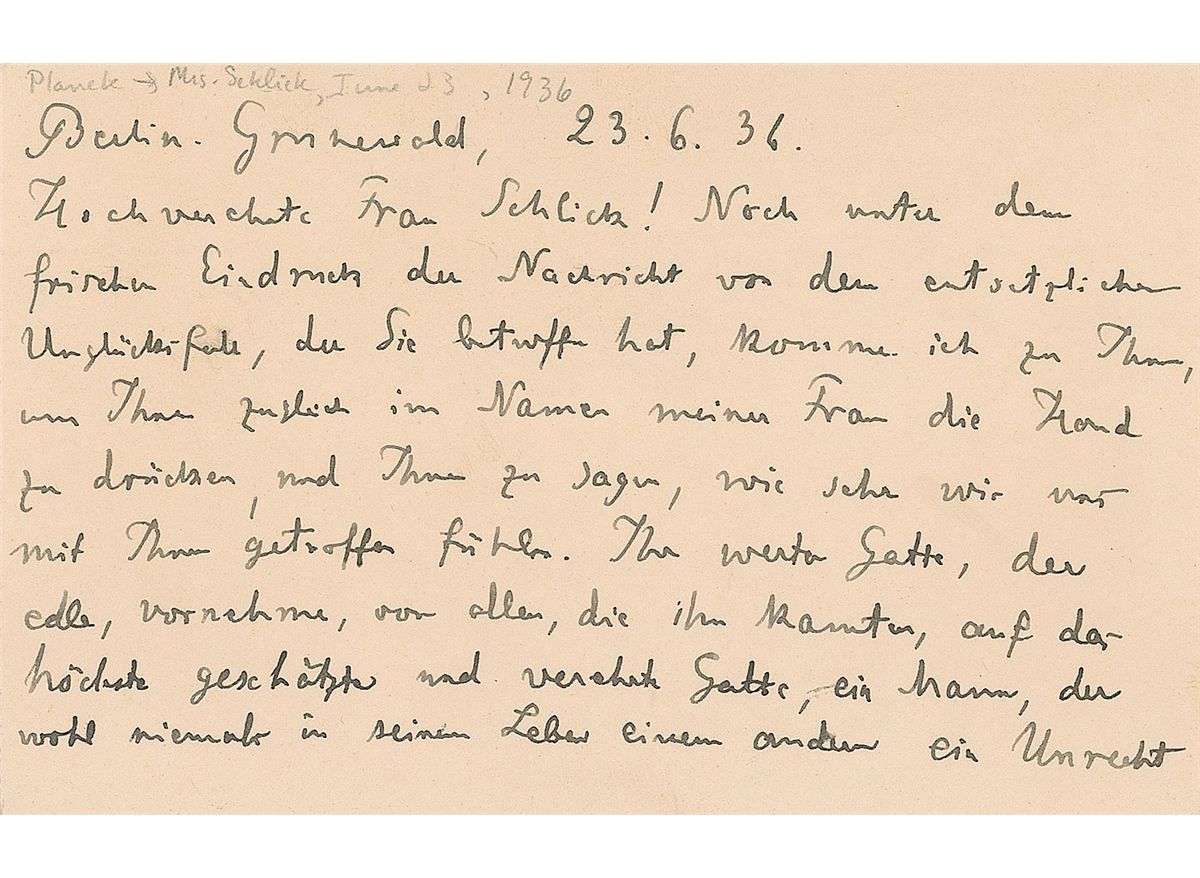 Planck → Mrs. Schlick, June 23, 1936
Berlin-Grunewald, 23.6.36.
Hochverehrte Frau Schlick! Noch unter dem
frischen Eindruck der Nachricht von dem entsetzlichen
Unglücksfall, der Sie betroffen hat, komme ich zu Ihnen,
um Ihnen zugleich im Namen meiner Frau die Hand
zu drücken, und Ihnen zu sagen, wie sehr wir uns
mit Ihnen getroffen fühlen. Ihr werter Gatte, der
edle, vornehme, von allen, die ihn kannten, auf das
höchste geschätzte und verehrte Gatte, ein Mann, der
wohl niemals in seinem Leben einem andern ein Unrecht